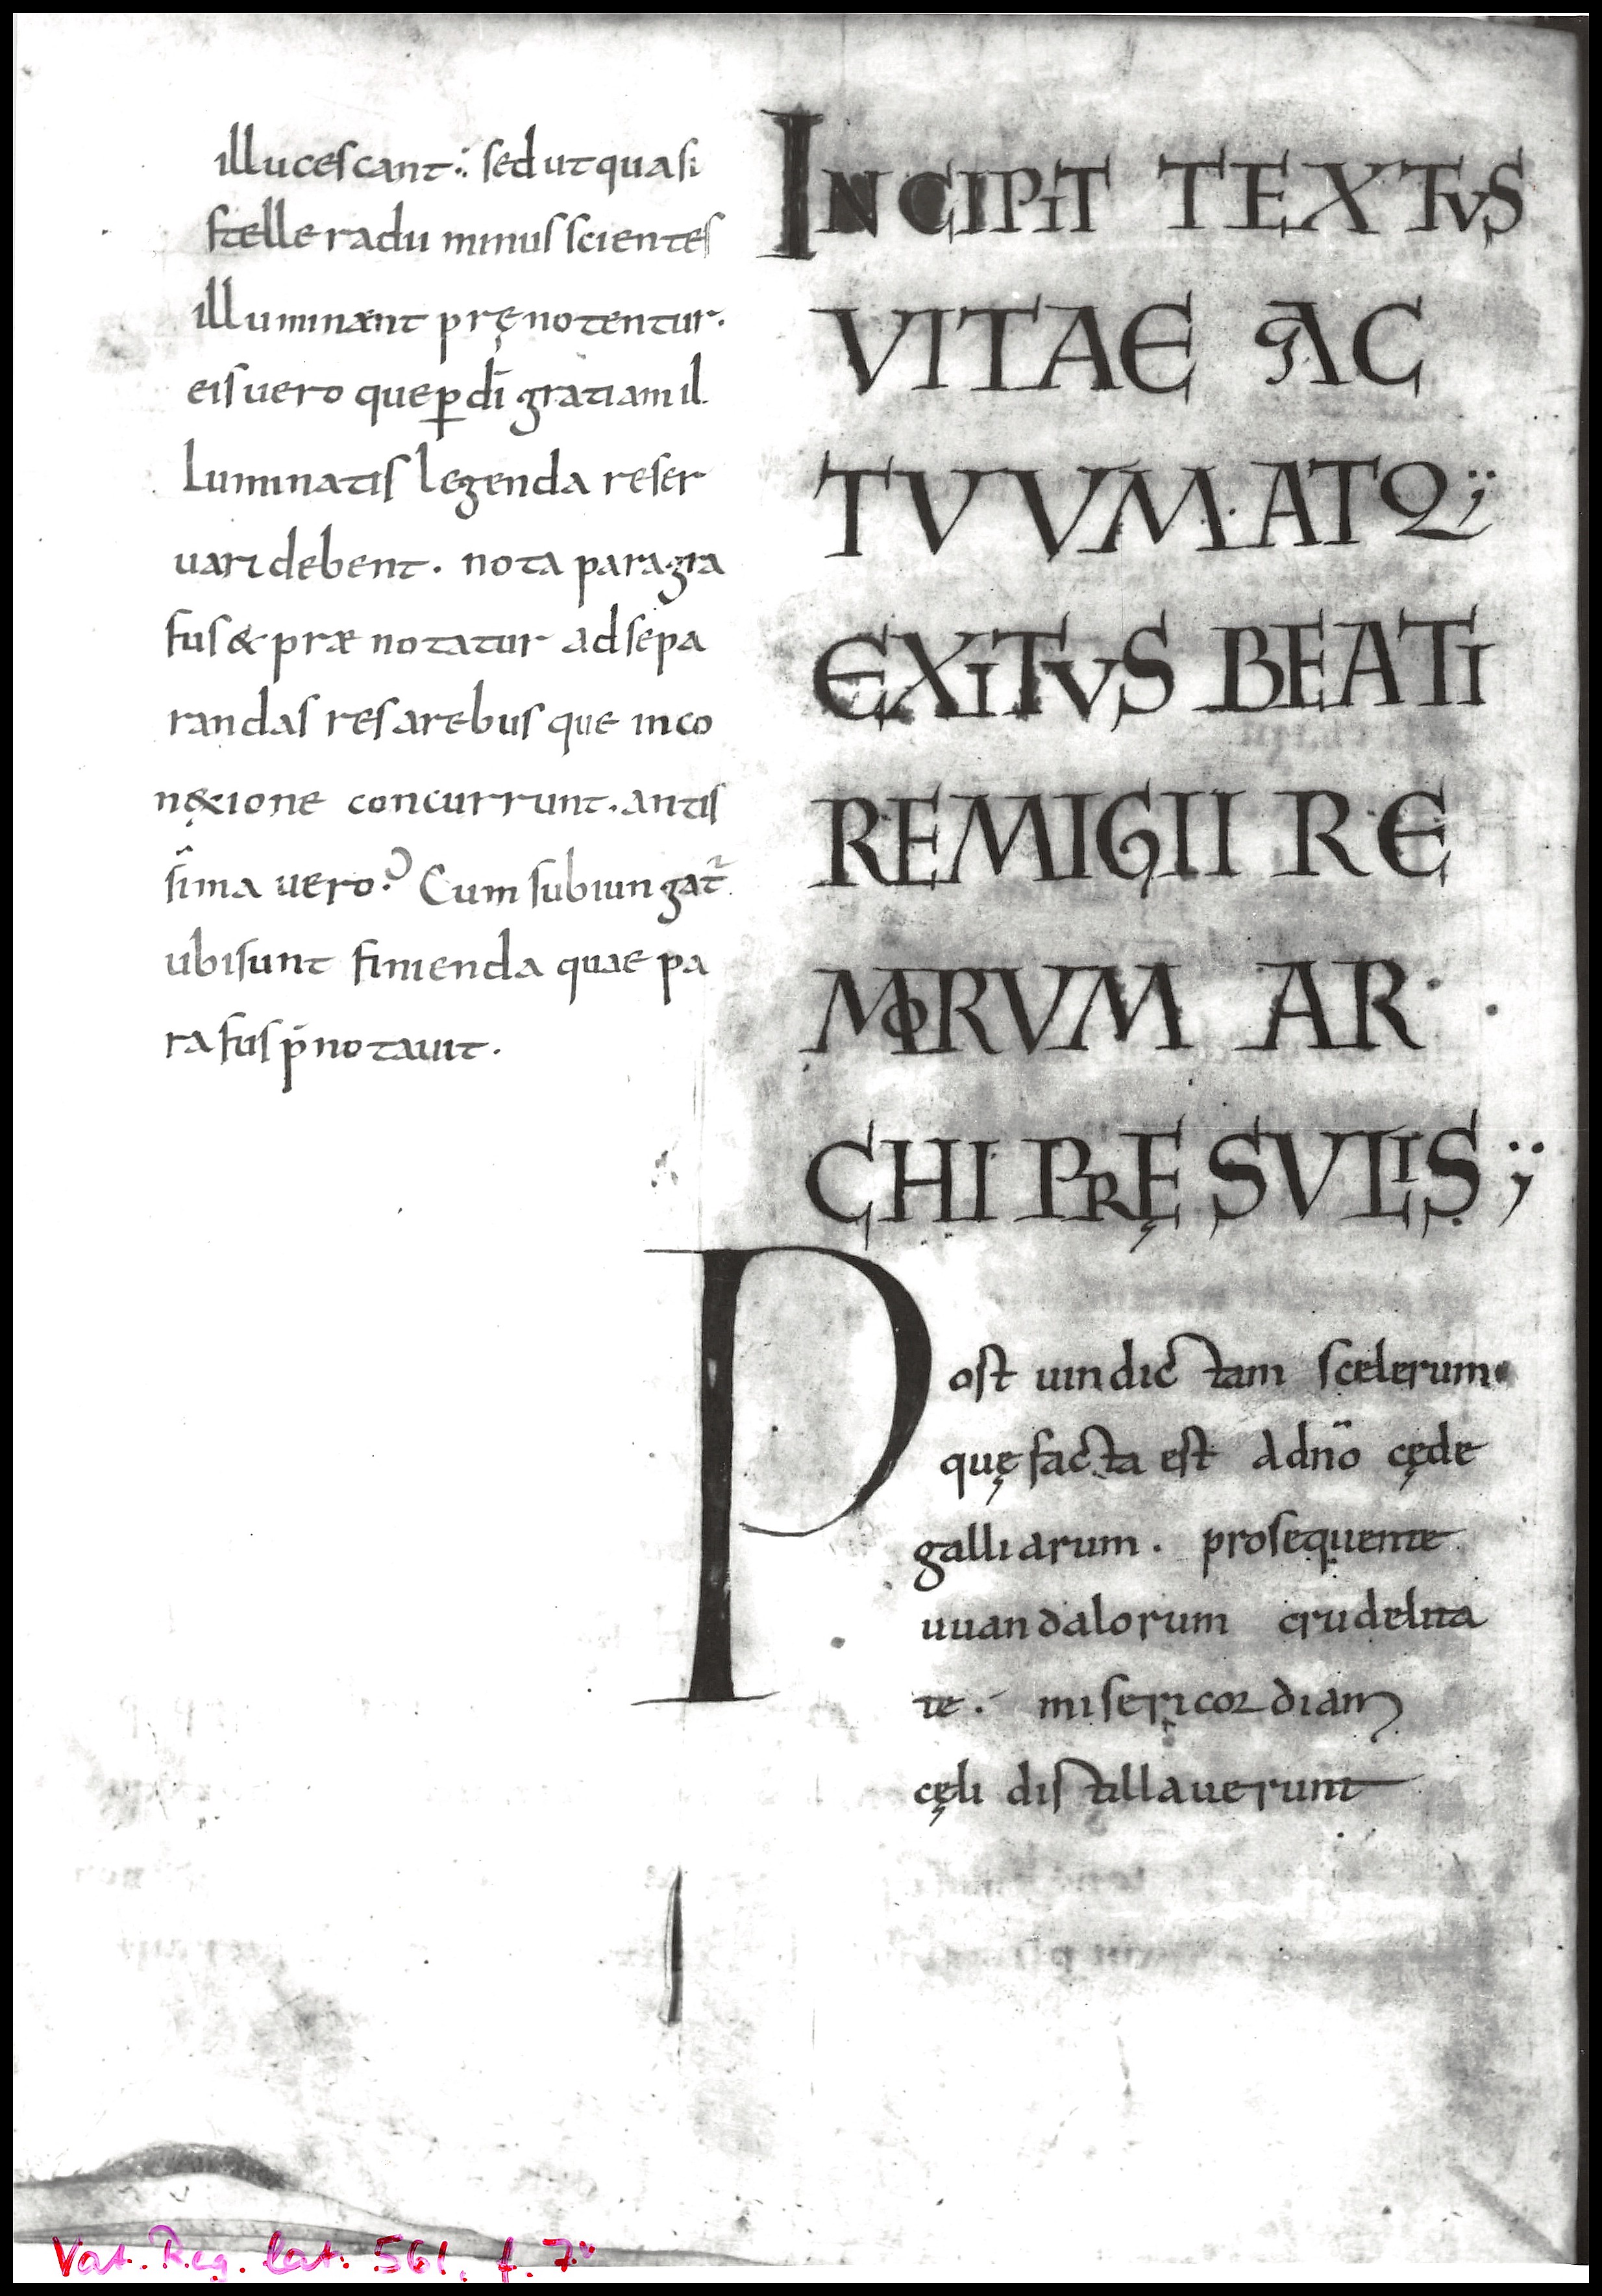 illucescant; sed ut quasi
stelle radii minus scientes
illuminant prę notentur.
eis uero que p̱ dī gratiam il
luminatis legenda reser
uari debent. nota paragra
fus & præ notatur ad sepa
randas res a rebus que in co
nę&xione concurrunt. antis
sima uero? Cum subiungat̃
ubi sunt finienda quae pa
rafus p̄notauit.
INCIPIT TEXTVS
VITAE AC
TVVM. ATQ;
EXITVS BEATI
REMIGII RE
MORVM AR
CHI PRĘSVLIS;
Post uindictam scelerum.
quę facta est a dn̄o cęde
galliarum. prosequente
uuandalorum crudelita
te. misericordiam
cęli distillauerunt
Vat. Reg. lat. 561, f. 7v